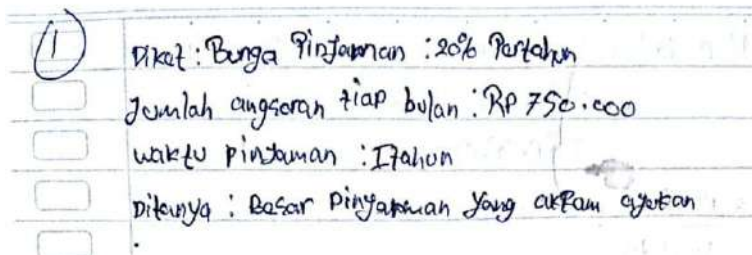 1 Diket : Bunga Pinjaman : 20% Pertahun
Jumlah angsuran tiap bulan : RP 750.000
waktu pinjaman : 1 tahun
Ditanya : Besar Pinjaman yang akan ajukan